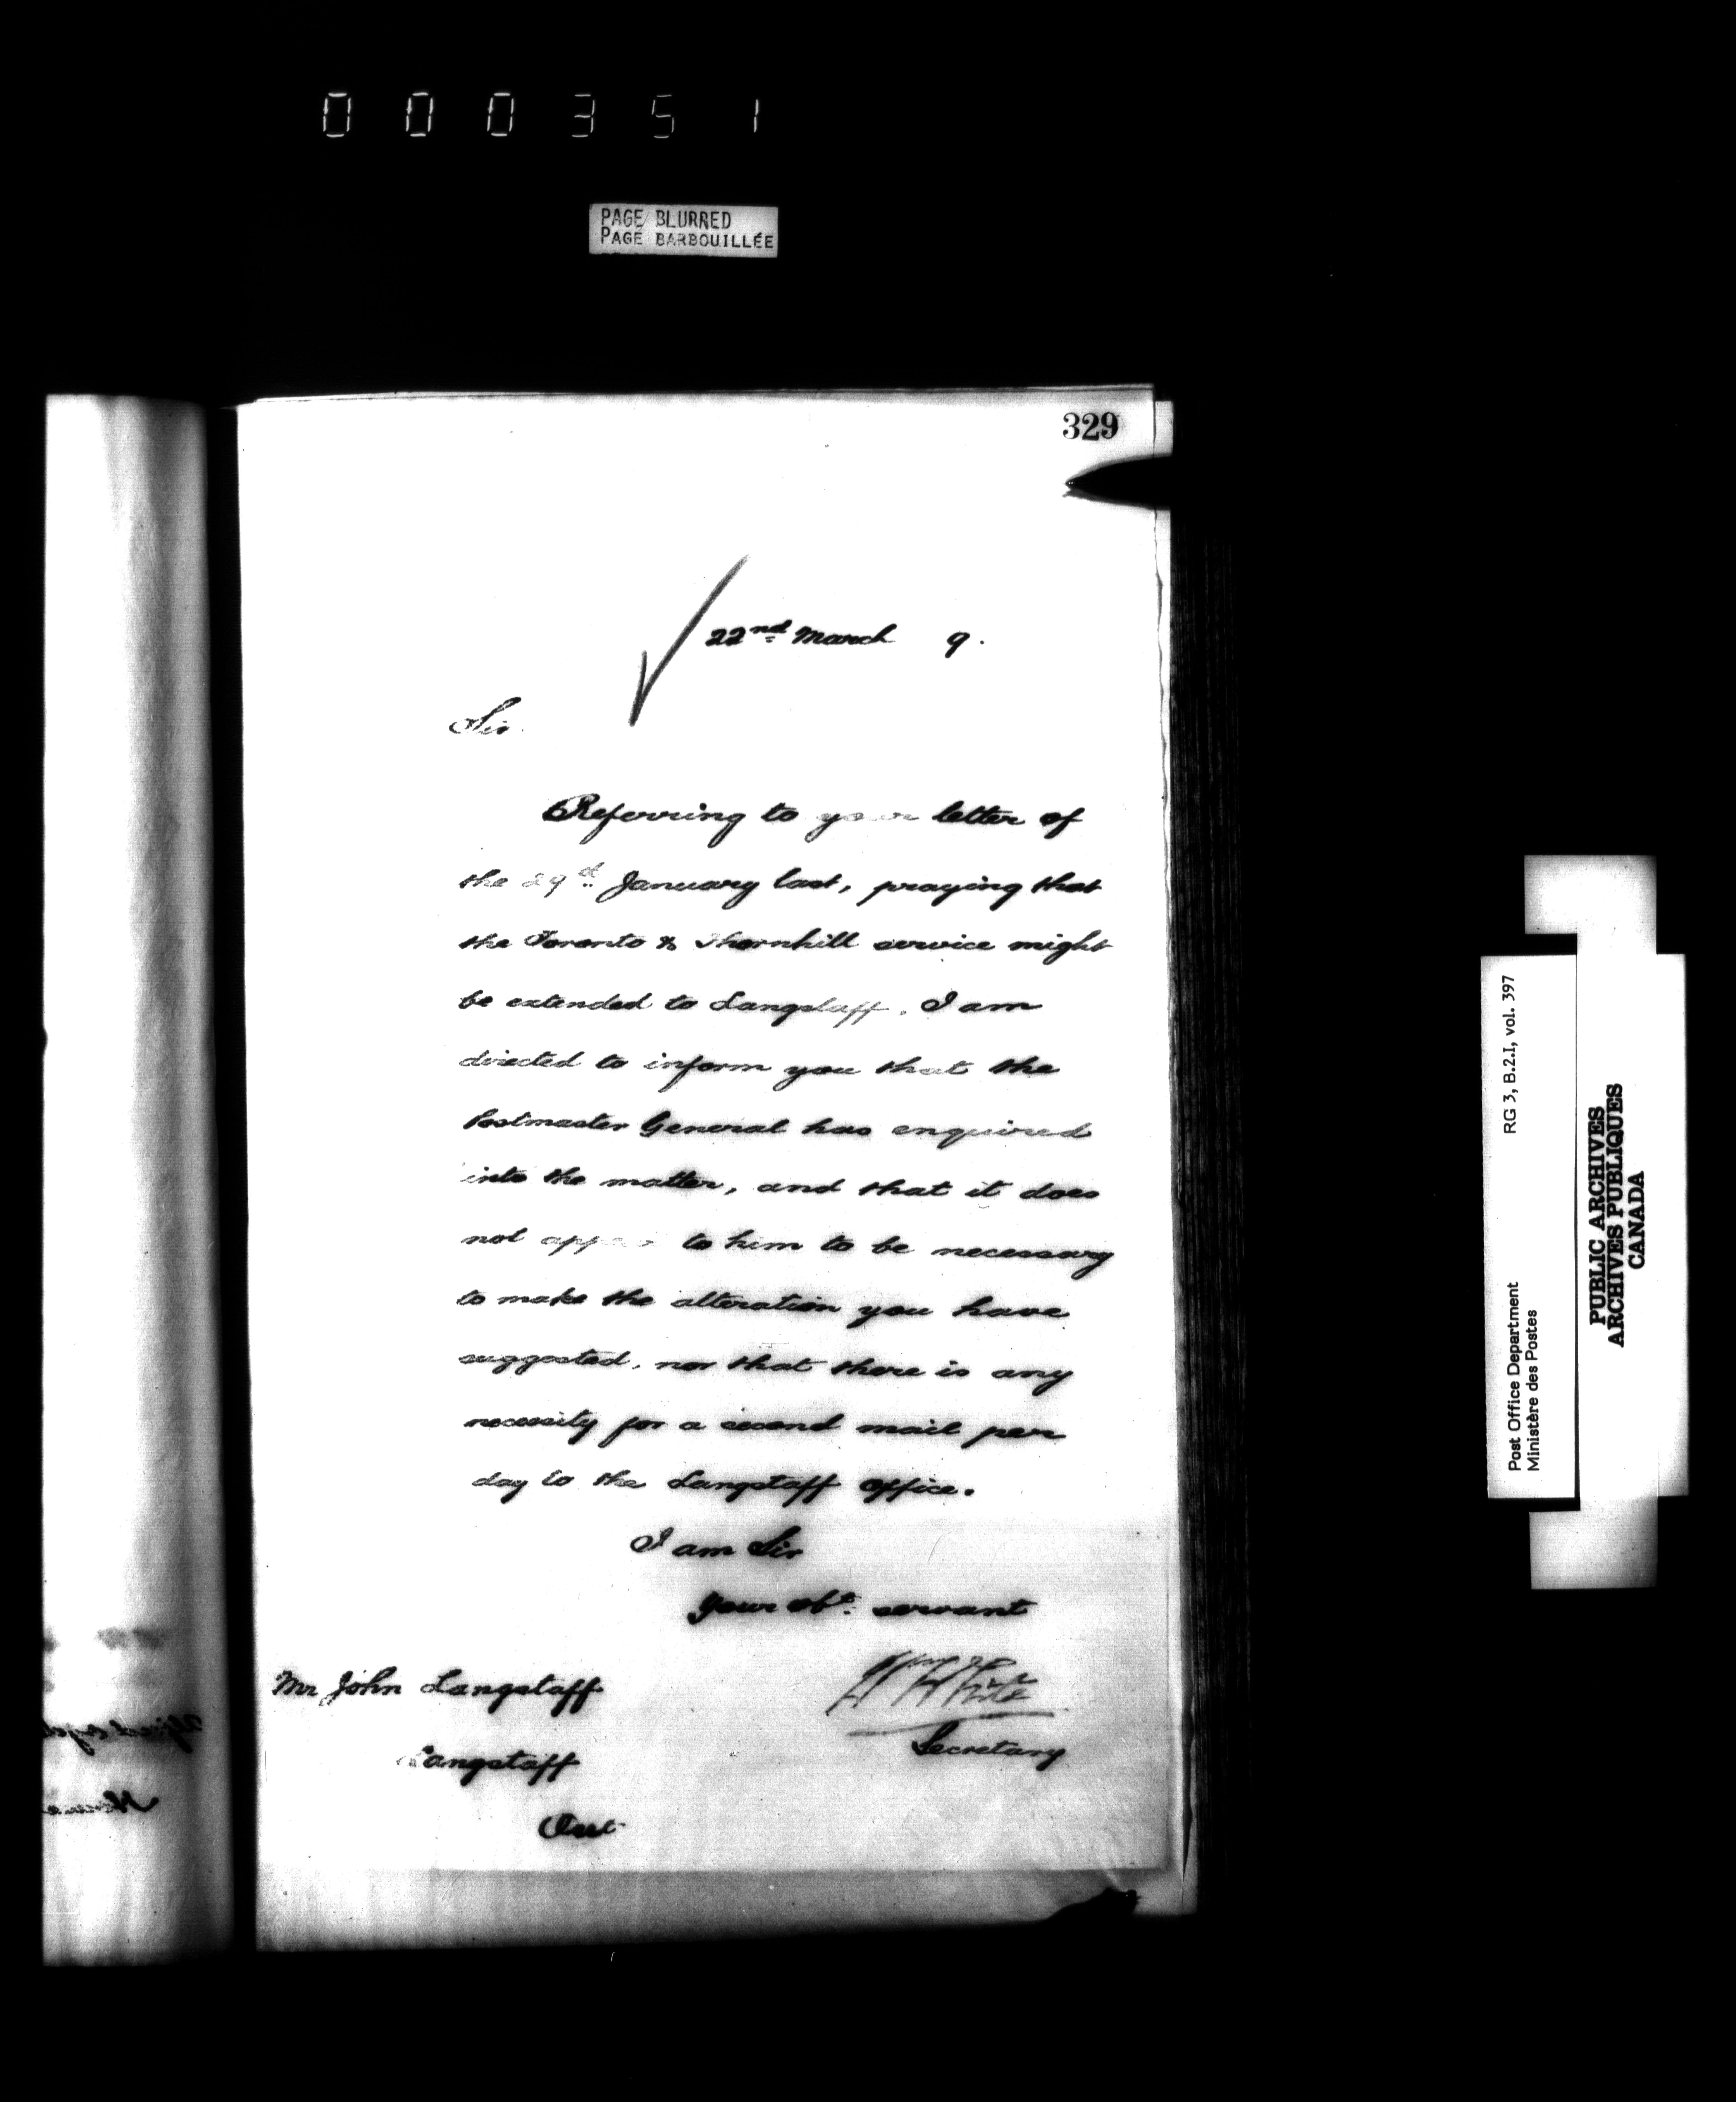 000351
PAGE BLURRED
PAGE BARBOUILLÉE
329
22nd March 9.
Sir.
Referring to your letter of
the 29th January last, praying that
the Toronto & Thornhill service might
be extended to Langstaff, I am
directed to inform you that the
Postmaster General has enquired
into the matter, and that it does
not appear to him to be necessary
to make the alteration you have
suggested, nor that there is any
necessity for a second mail per
day to the Langstaff Office.
I am Sir
Your obt. servant
Secretary
Mr John Langstaff
Langstaff
Ont
Post Office Department RG 3, B.2.I, vol. 397
Ministère des Postes
PUBLIC ARCHIVES
ARCHIVES PUBLIQUES
CANADA